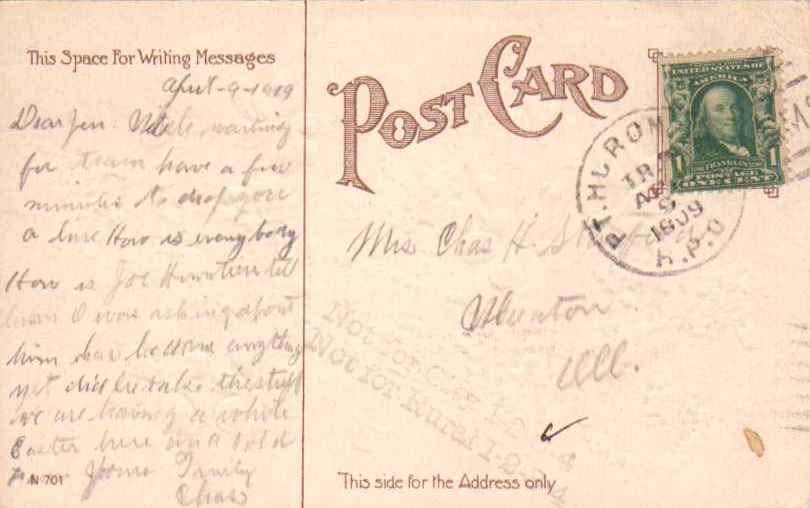 This Space For Writing Messages
April-9-1909
Dear Jen. While waiting
for train have a few
minutes to drop you
a line How is everybody
How is Joe tell
I was asking about
him has he done anything
yet did he take the stuff
we are having a white
Easter here and a cold
Yours Truly
Chas
N 701
POST CARD
UNITED STATES OF
AMERICA
FRANKLIN
1 1
POSTAGE
ONE CENT
PT. HURON
TR 
AP
9
1909
R.P.O
Mrs Chas H.
Wheaton
Ill.
Not for City 1-2-3-4
Not for Rural 1-2-3-4
This side for the Address only